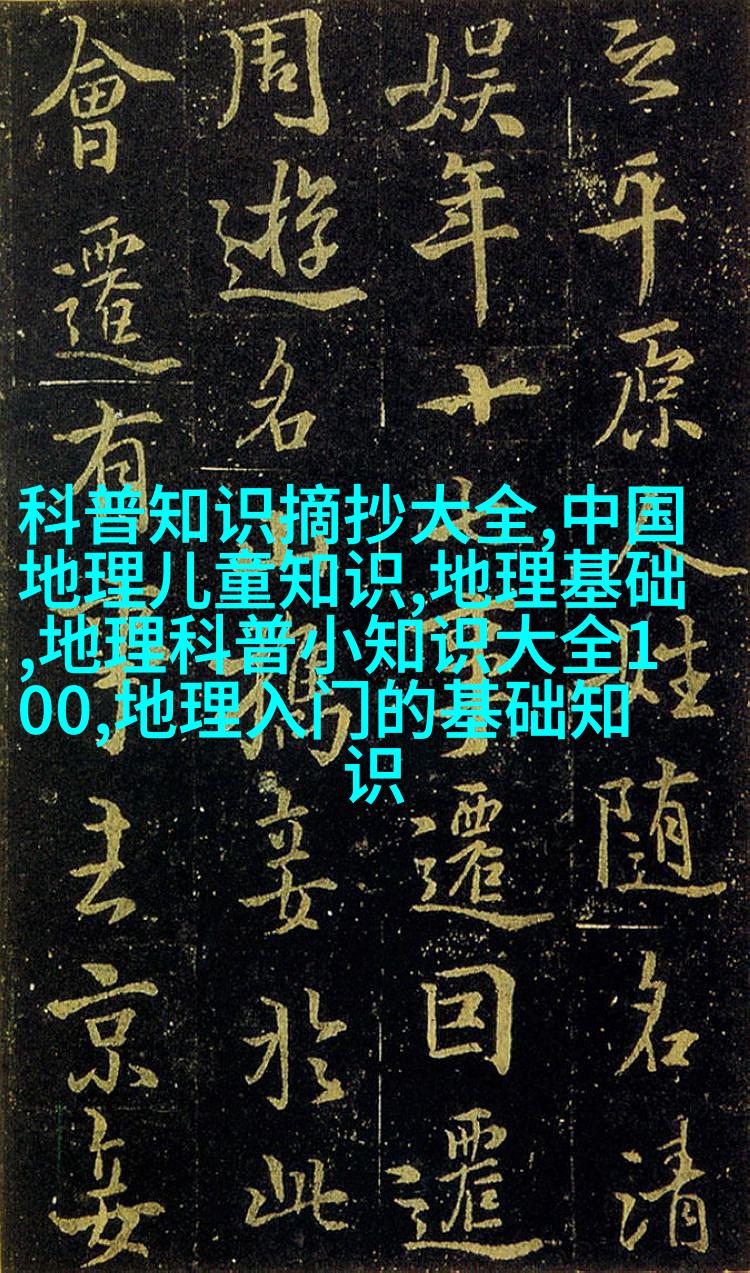 之平原人姓随名清
娱年十遷回遷
周遊名山於此
會遷有京
科普知识摘抄大全,中国
地理儿童知识,地理基础
,地理科普小知识大全1
00,地理入门的基础知
识